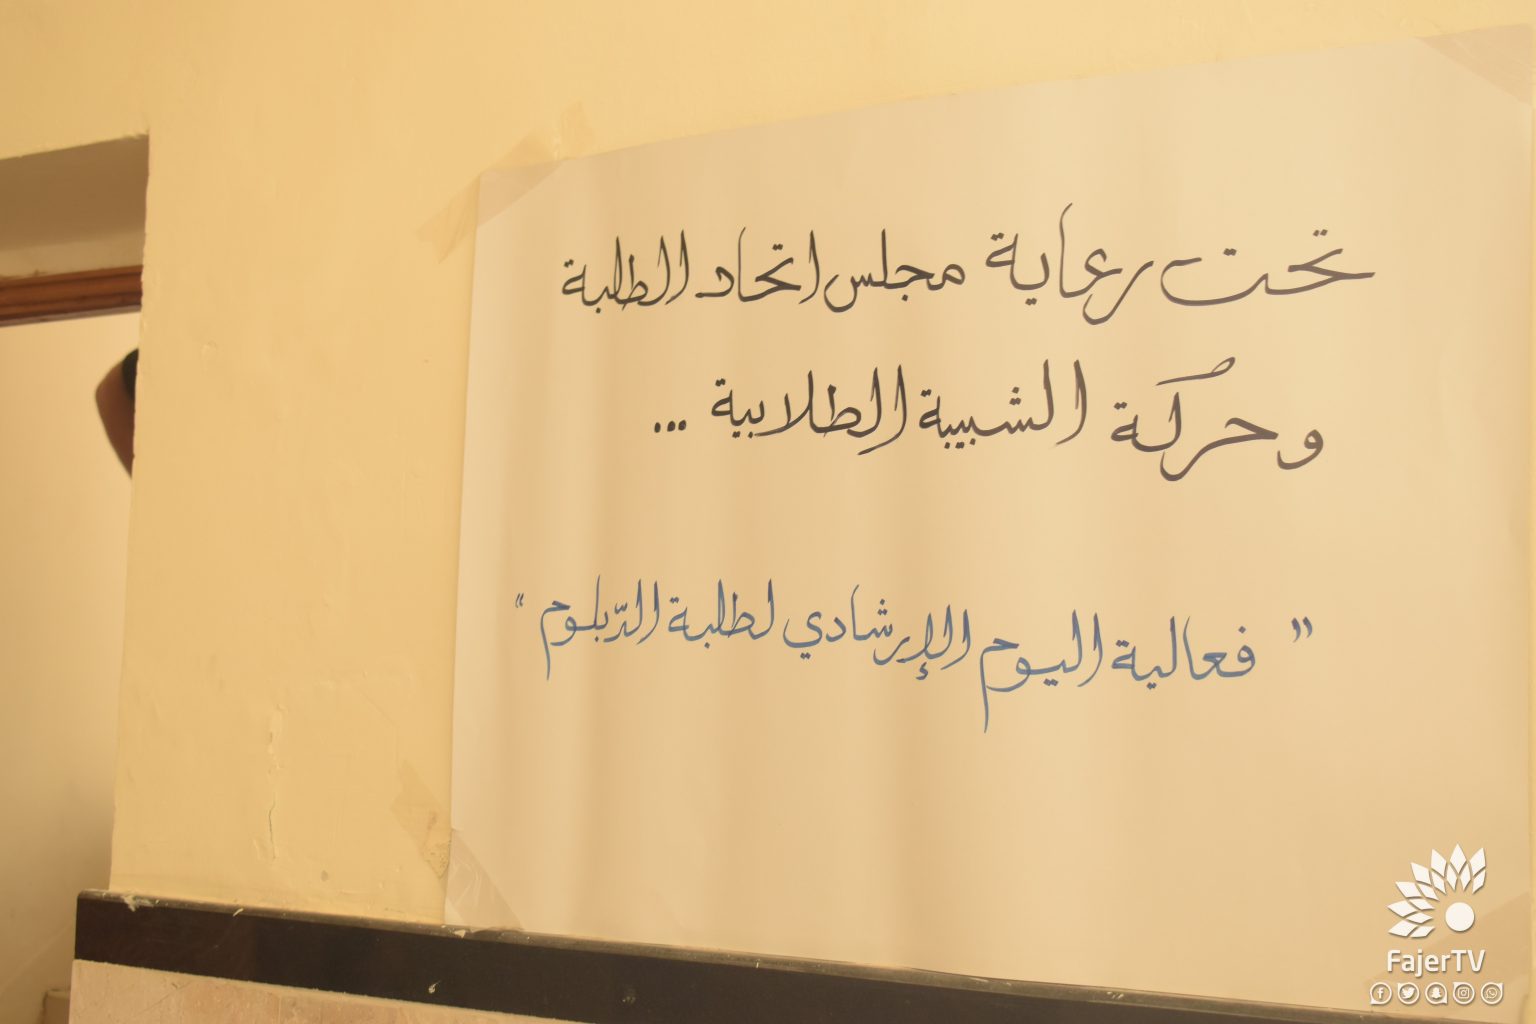 تحت رعاية مجلس اتحاد الطلبة
وحركة الشبيبة الطلابية ...
" فعالية اليوم الإرشادي لطلبة الدّبلوم "
FajerTV